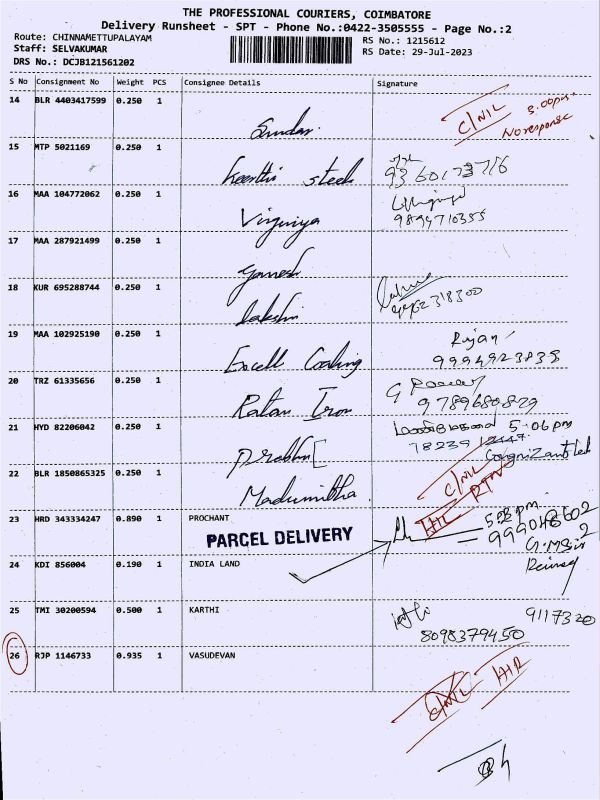 THE PROFESSIONAL COURIERS, COIMBATORE
Delivery Runsheet - SPT - Phone No.:0422-3505555 - Page No.:2
Route: CHINNAMETTUPALAYAM
RS No.: 1215612
Staff: SELVAKUMAR
RS Date: 29-Jul-2023
DRS No.: DCJB121561202
S No Consignment No Weight PCS Consignee Details Signature
14 BLR 4403417599 0.250 1
C/NIL 5.00pm
No response
Sundar.
15 MTP 5021169 0.250 1
Keerthi steel
16 MAA 104772062 0.250 1
Virginiya
9894710355
17 MAA 287921499 0.250 1
Ganesh
18 KUR 695288744 0.250 1
Lakshin
19 MAA 102925190 0.250 1
Rajan
Excell Coating 9994923835
20 TRZ 61335656 0.250 1
Ratan Iron 9789680829
21 HYD 82206042 0.250 1
5.06pm
Prabhu
22 BLR 1850865325 0.250 1
C/NIL
Madumitha
23 HRD 343334247 0.890 1 PROCHANT
PARCEL DELIVERY
24 KDI 856004 0.190 1 INDIA LAND
25 TMI 30200594 0.500 1 KARTHI
9117320
8098379450
26 RJP 1146733 0.935 1 VASUDEVAN
C/NIL